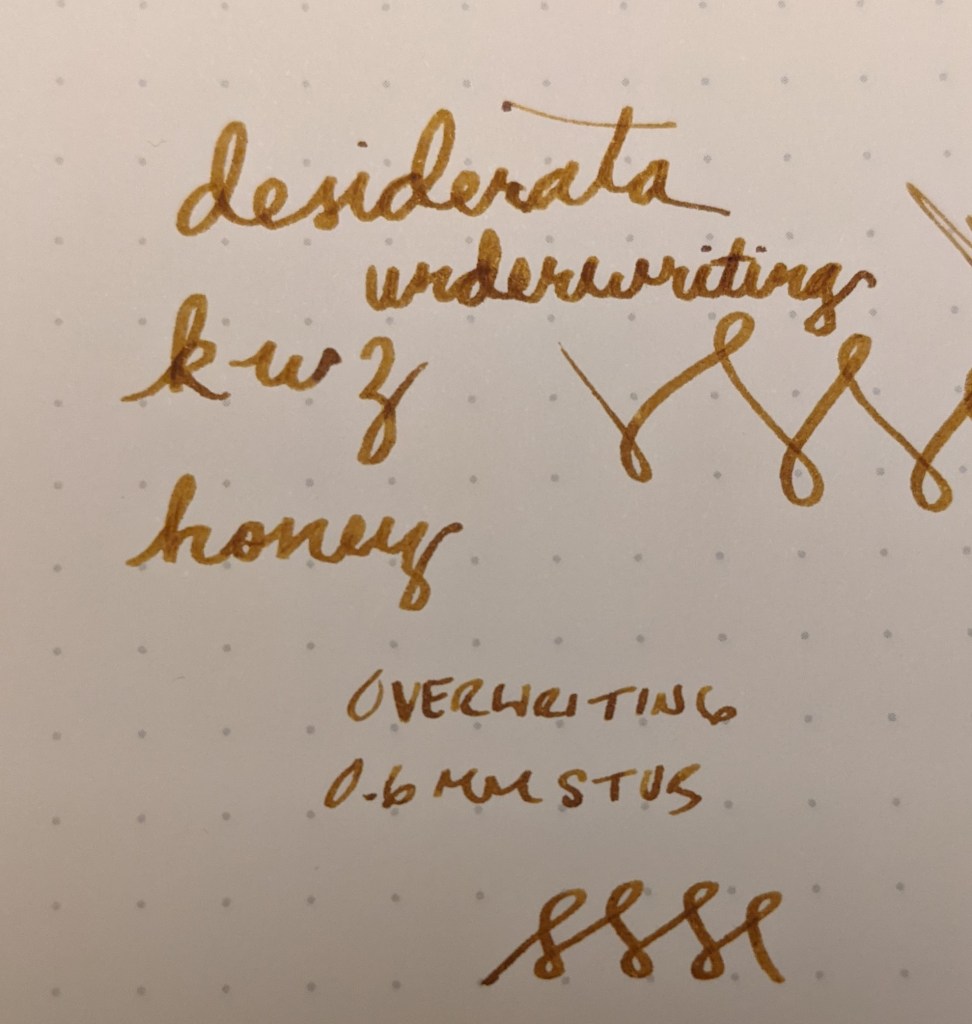 desiderata
underwriting
kwz
honey
OVERWRITING
0.6 MM STUB